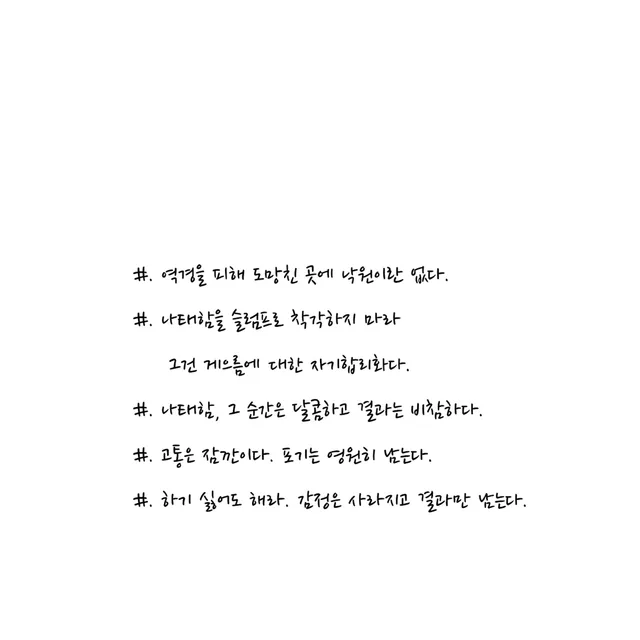 #. 역경을 피해 도망친 곳에 낙원이란 없다.
#. 나태함을 슬럼프로 착각하지 마라
그건 게으름에 대한 자기합리화다.
#. 나태함, 그 순간은 달콤하고 결과는 비참하다.
#. 고통은 잠깐이다. 포기는 영원히 남는다.
#. 하기 싫어도 해라. 감정은 사라지고 결과만 남는다.